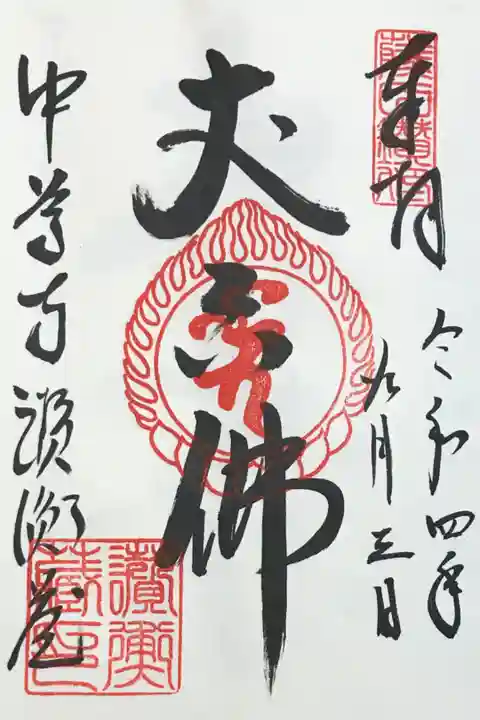 奉拝
令和四年
九月三日
丈六佛
中尊寺讃衡蔵
讃衡
蔵印